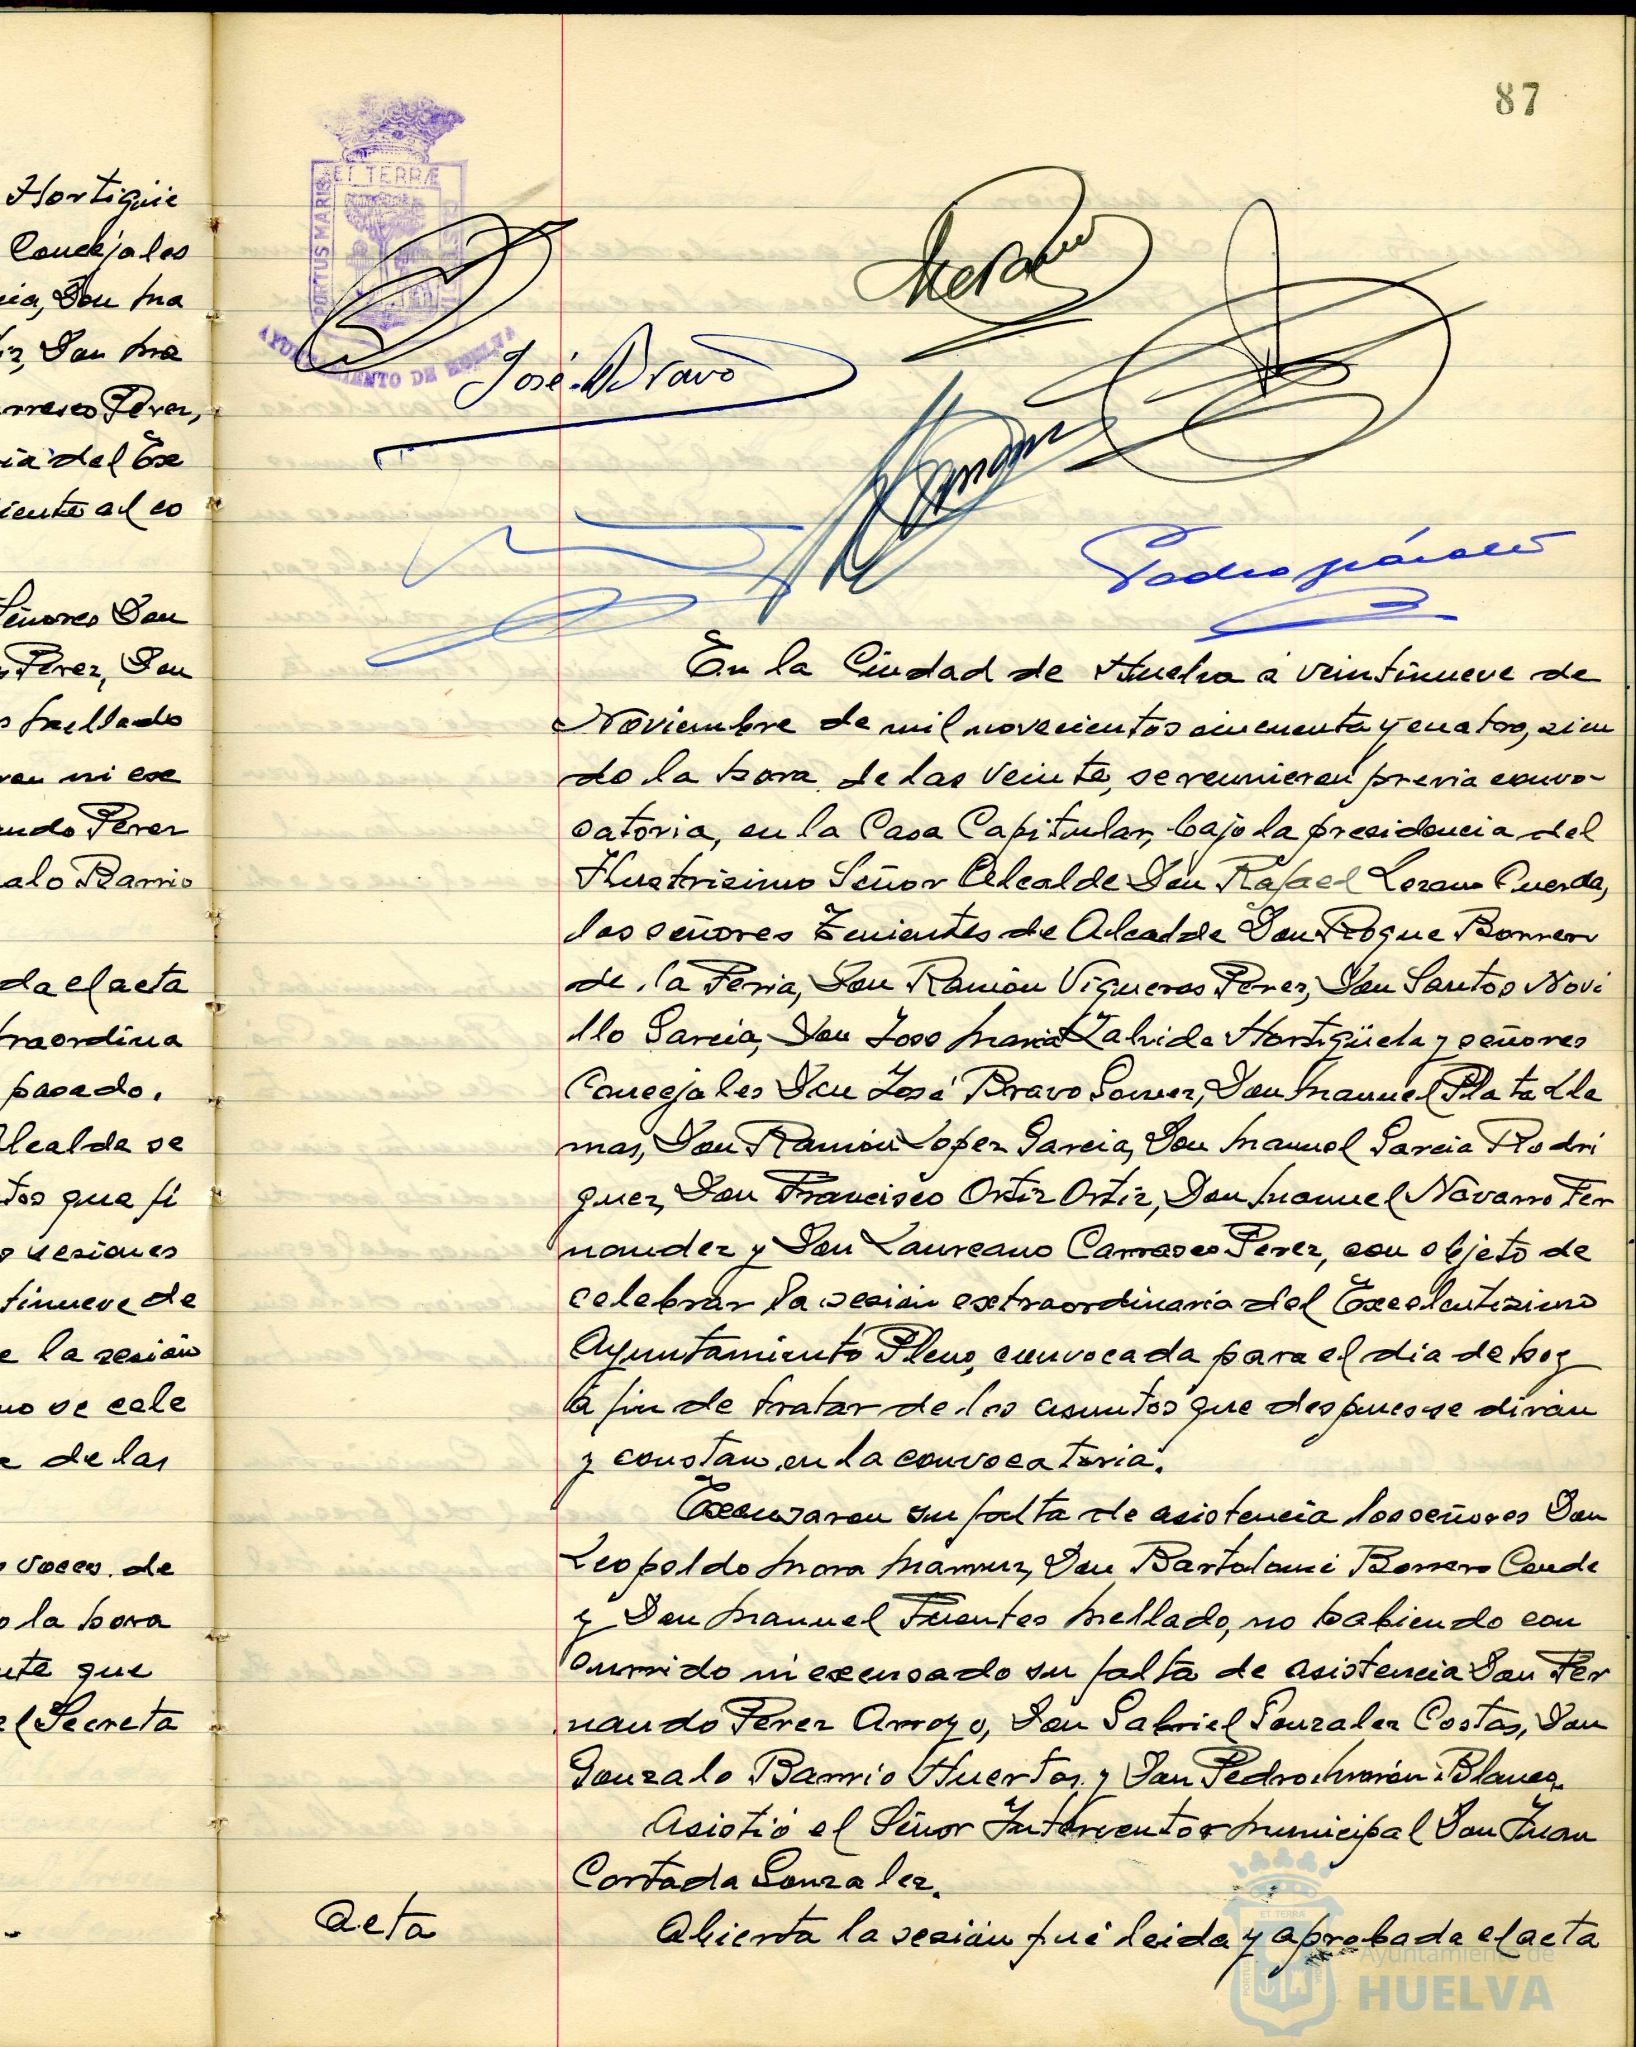 87
ET TERRÆ
PORTUS MARIS
AYUNTAMIENTO DE HUELVA
José Bravo
Hortigüe
Concejales
cia, Don Ma
iz, Don Ma
rrasco Perez,
ria del Exc
iente al co
Señores Don
s Perez, Don
s Mellado
ron ni exc
ando Perez
alo Barrio
da el acta
traordina
pasado.
Alcalde se
tos que fi
s sesiones
tinueve de
e la sesión
no se cele
de las
voces de
o la hora
nte que
el Secreta
En la Ciudad de Huelva a veintinueve de
Noviembre de mil novecientos cincuenta y cuatro, sien
do la hora de las veinte, se reunieron previa convo-
catoria, en la Casa Capitular, bajo la presidencia del
Ilustrisimo Señor Alcalde Don Rafael Lozano Cuerda,
los señores Tenientes de Alcalde Don Roque Borrero
de la Feria, Don Ramón Vigueras Perez, Don Santos Novi
llo Garcia, Don Jose Maria Zalvide Hortigüela y señores
Concejales Don José Bravo Gomez, Don Manuel Plata Lla
mas, Don Ramón Lopez Garcia, Don Manuel Garcia Rodri
guez, Don Francisco Ortiz Ortiz, Don Manuel Navarro Fer
nandez y Don Laureano Carrasco Perez, con objeto de
celebrar la sesión extraordinaria del Excelentisimo
Ayuntamiento Pleno, convocada para el día de hoy
a fin de tratar de los asuntos que despues se dirán
y constan en la convocatoria.
Excusaron su falta de asistencia los señores Don
Leopoldo Mora Don Bartolomé Borrero Conde
y Don Manuel Fuentes Mellado, no habiendo con
currido ni excusado su falta de asistencia Don Fer
nando Perez Arroyo, Don Gabriel Gonzalez Costas, Don
Gonzalo Barrio Huertos y Don Pedro Morón Blanco.
Asistió el Señor Interventor Municipal Don Juan
Cortada Gonzalez.
Acta
Abierta la sesión fué leida y aprobada el acta
ET TERRÆ
Ayuntamiento de
HUELVA